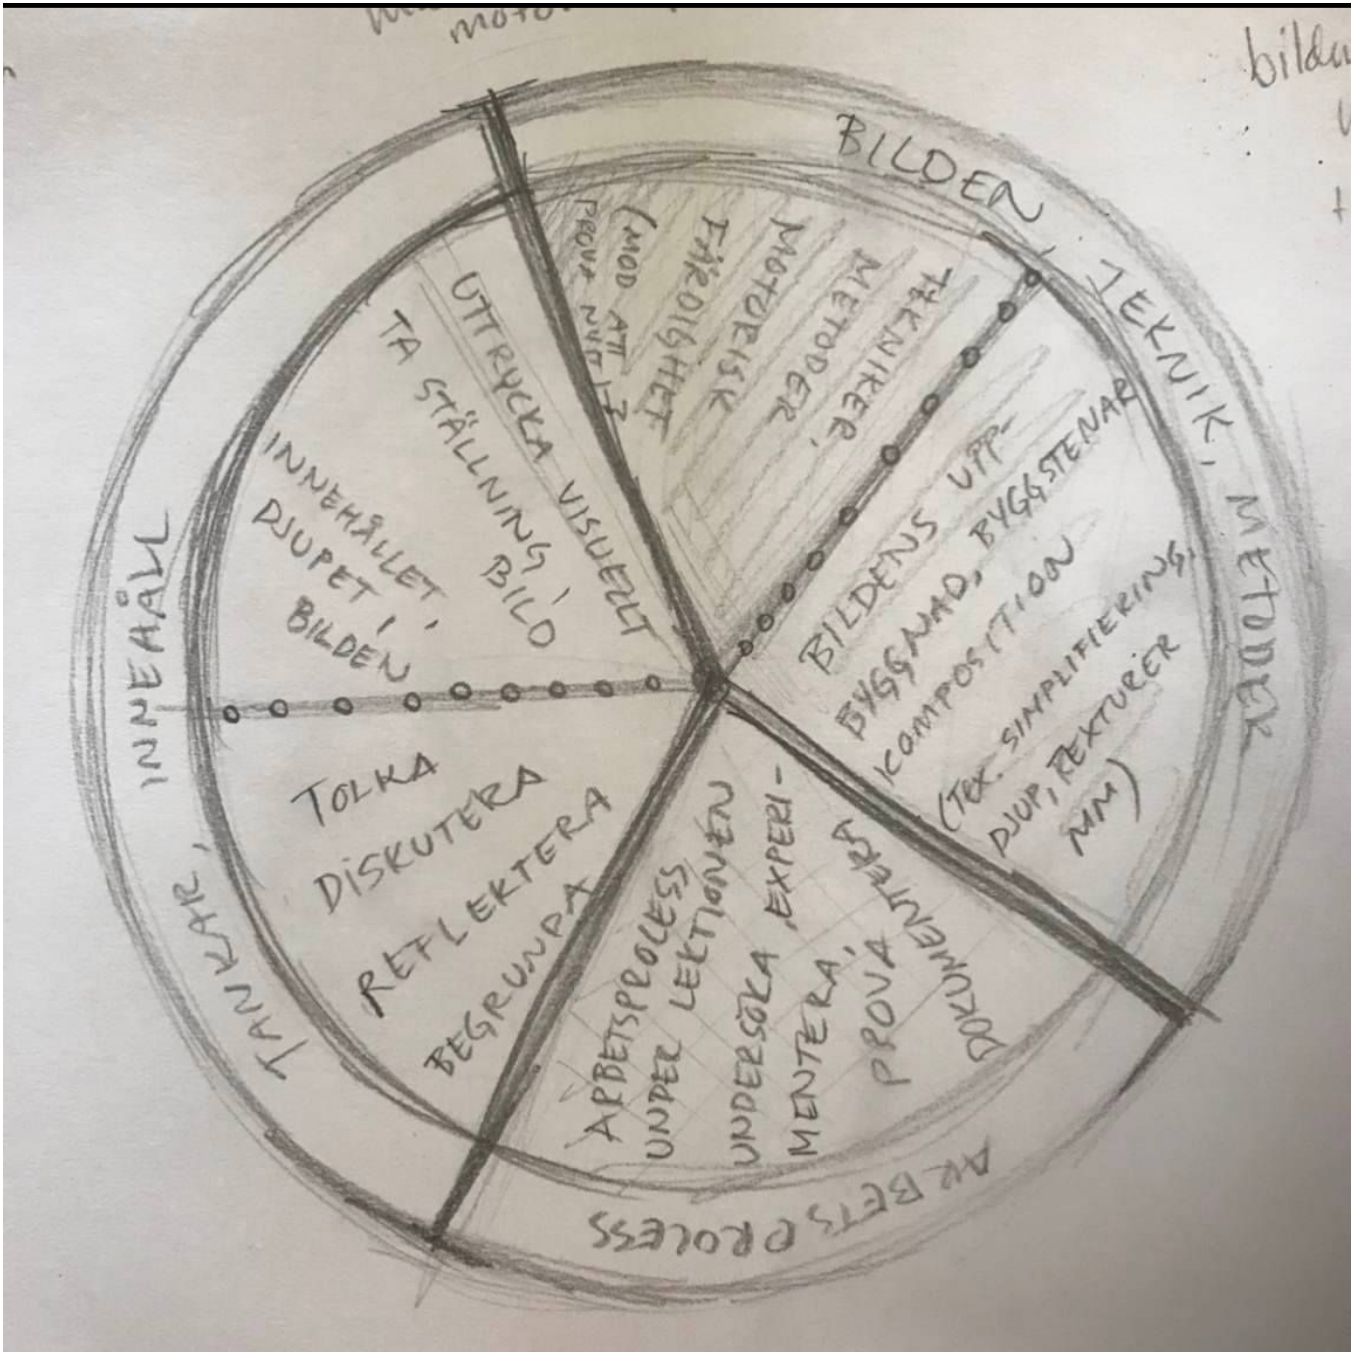 bilda
BILDEN
TEKNIK, METODER
TEKNIKER,
METODER,
MOTORISK
FÄRDIGHET
(MOD ATT
PROVA NYTT)
BILDENS UPP-
BYGGNAD, BYGGSTENAR
KOMPOSITION
(TEX. SIMPLIFIERING,
DJUP, REXTURER
MM)
ARBETSPROCESS
ARBETSPROCESS
UNDER LEKTIONEN
UNDERSÖKA, EXPERI-
MENTERA,
PROVA,
DOKUMENTERA
TANKAR,
INNEÅLL
TOLKA
DISKUTERA
REFLEKTERA
BEGRUNDA
INNEHÅLLET,
DJUPET i
BILDEN
TA STÄLLNING i
BILD
UTTRYCKA VISUELLT